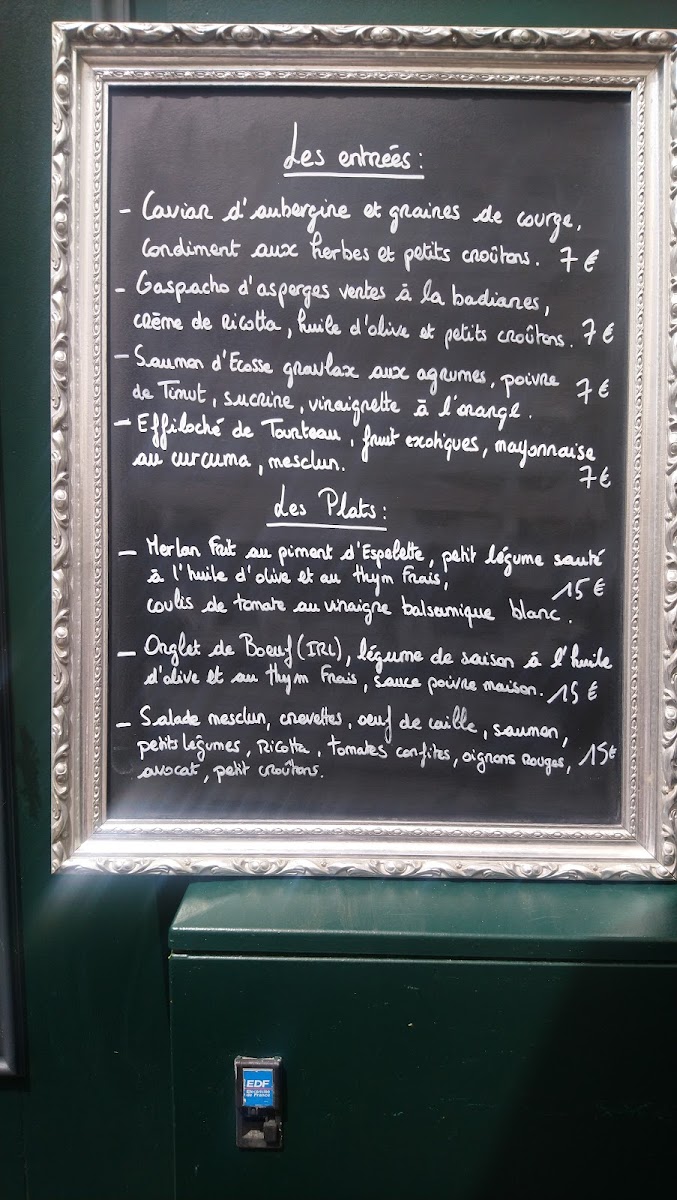 Les entrées :
- Caviar d'aubergine et graines de courge,
condiment aux herbes et petits croûtons. 7 €
- Gaspacho d'asperges vertes à la badianes,
crème de Ricotta, huile d'olive et petits croûtons. 7 €
- Saumon d'Ecosse gravlax aux agrumes, poivre
de Timut, sucrine, vinaigrette à l'orange. 7 €
- Effiloché de Tourteau, fruit exotiques, mayonnaise
au curcuma, mesclun. 7 €
Les Plats :
- Merlan Frit au piment d'Espelette, petit légume sauté
à l'huile d'olive et au thym Frais, 15 €
coulis de tomate au vinaigre balsamique blanc.
- Onglet de Boeuf (IRL), légume de saison à l'huile
d'olive et au thym Frais, sauce poivre maison. 15 €
- Salade mesclun, crevettes, oeuf de caille, saumon,
petits légumes, Ricotta, tomates confites, oignons Rouges, 15€
avocat, petit croûtons.
EDF
Electricité
de France